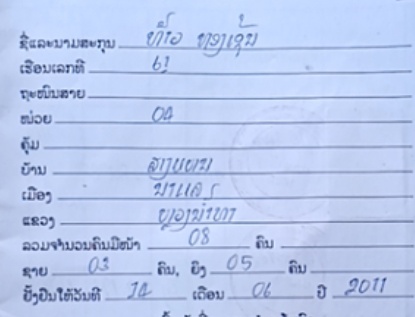 ຊື່ແລະນາມສະກຸນ ທ້າວ
ເຮືອນເລກທີ 61
ຖະໜົນສາຍ
ໜ່ວຍ 04
ຄຸ້ມ
ບ້ານ
ເມືອງ ນາແລ
ແຂວງ ຫຼວງນ້ຳທາ
ລວມຈຳນວນຄົນມີໜ້າ 08 ຄົນ
ຊາຍ 03 ຄົນ, ຍິງ 05 ຄົນ
ຢັ້ງຢືນໃຫ້ວັນທີ 14 ເດືອນ 06 ປີ 2011